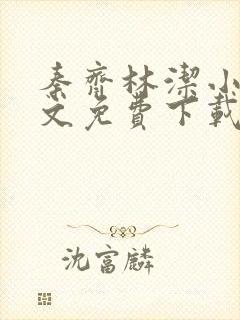 秦齊林潔小
文免費下載
沈富麟